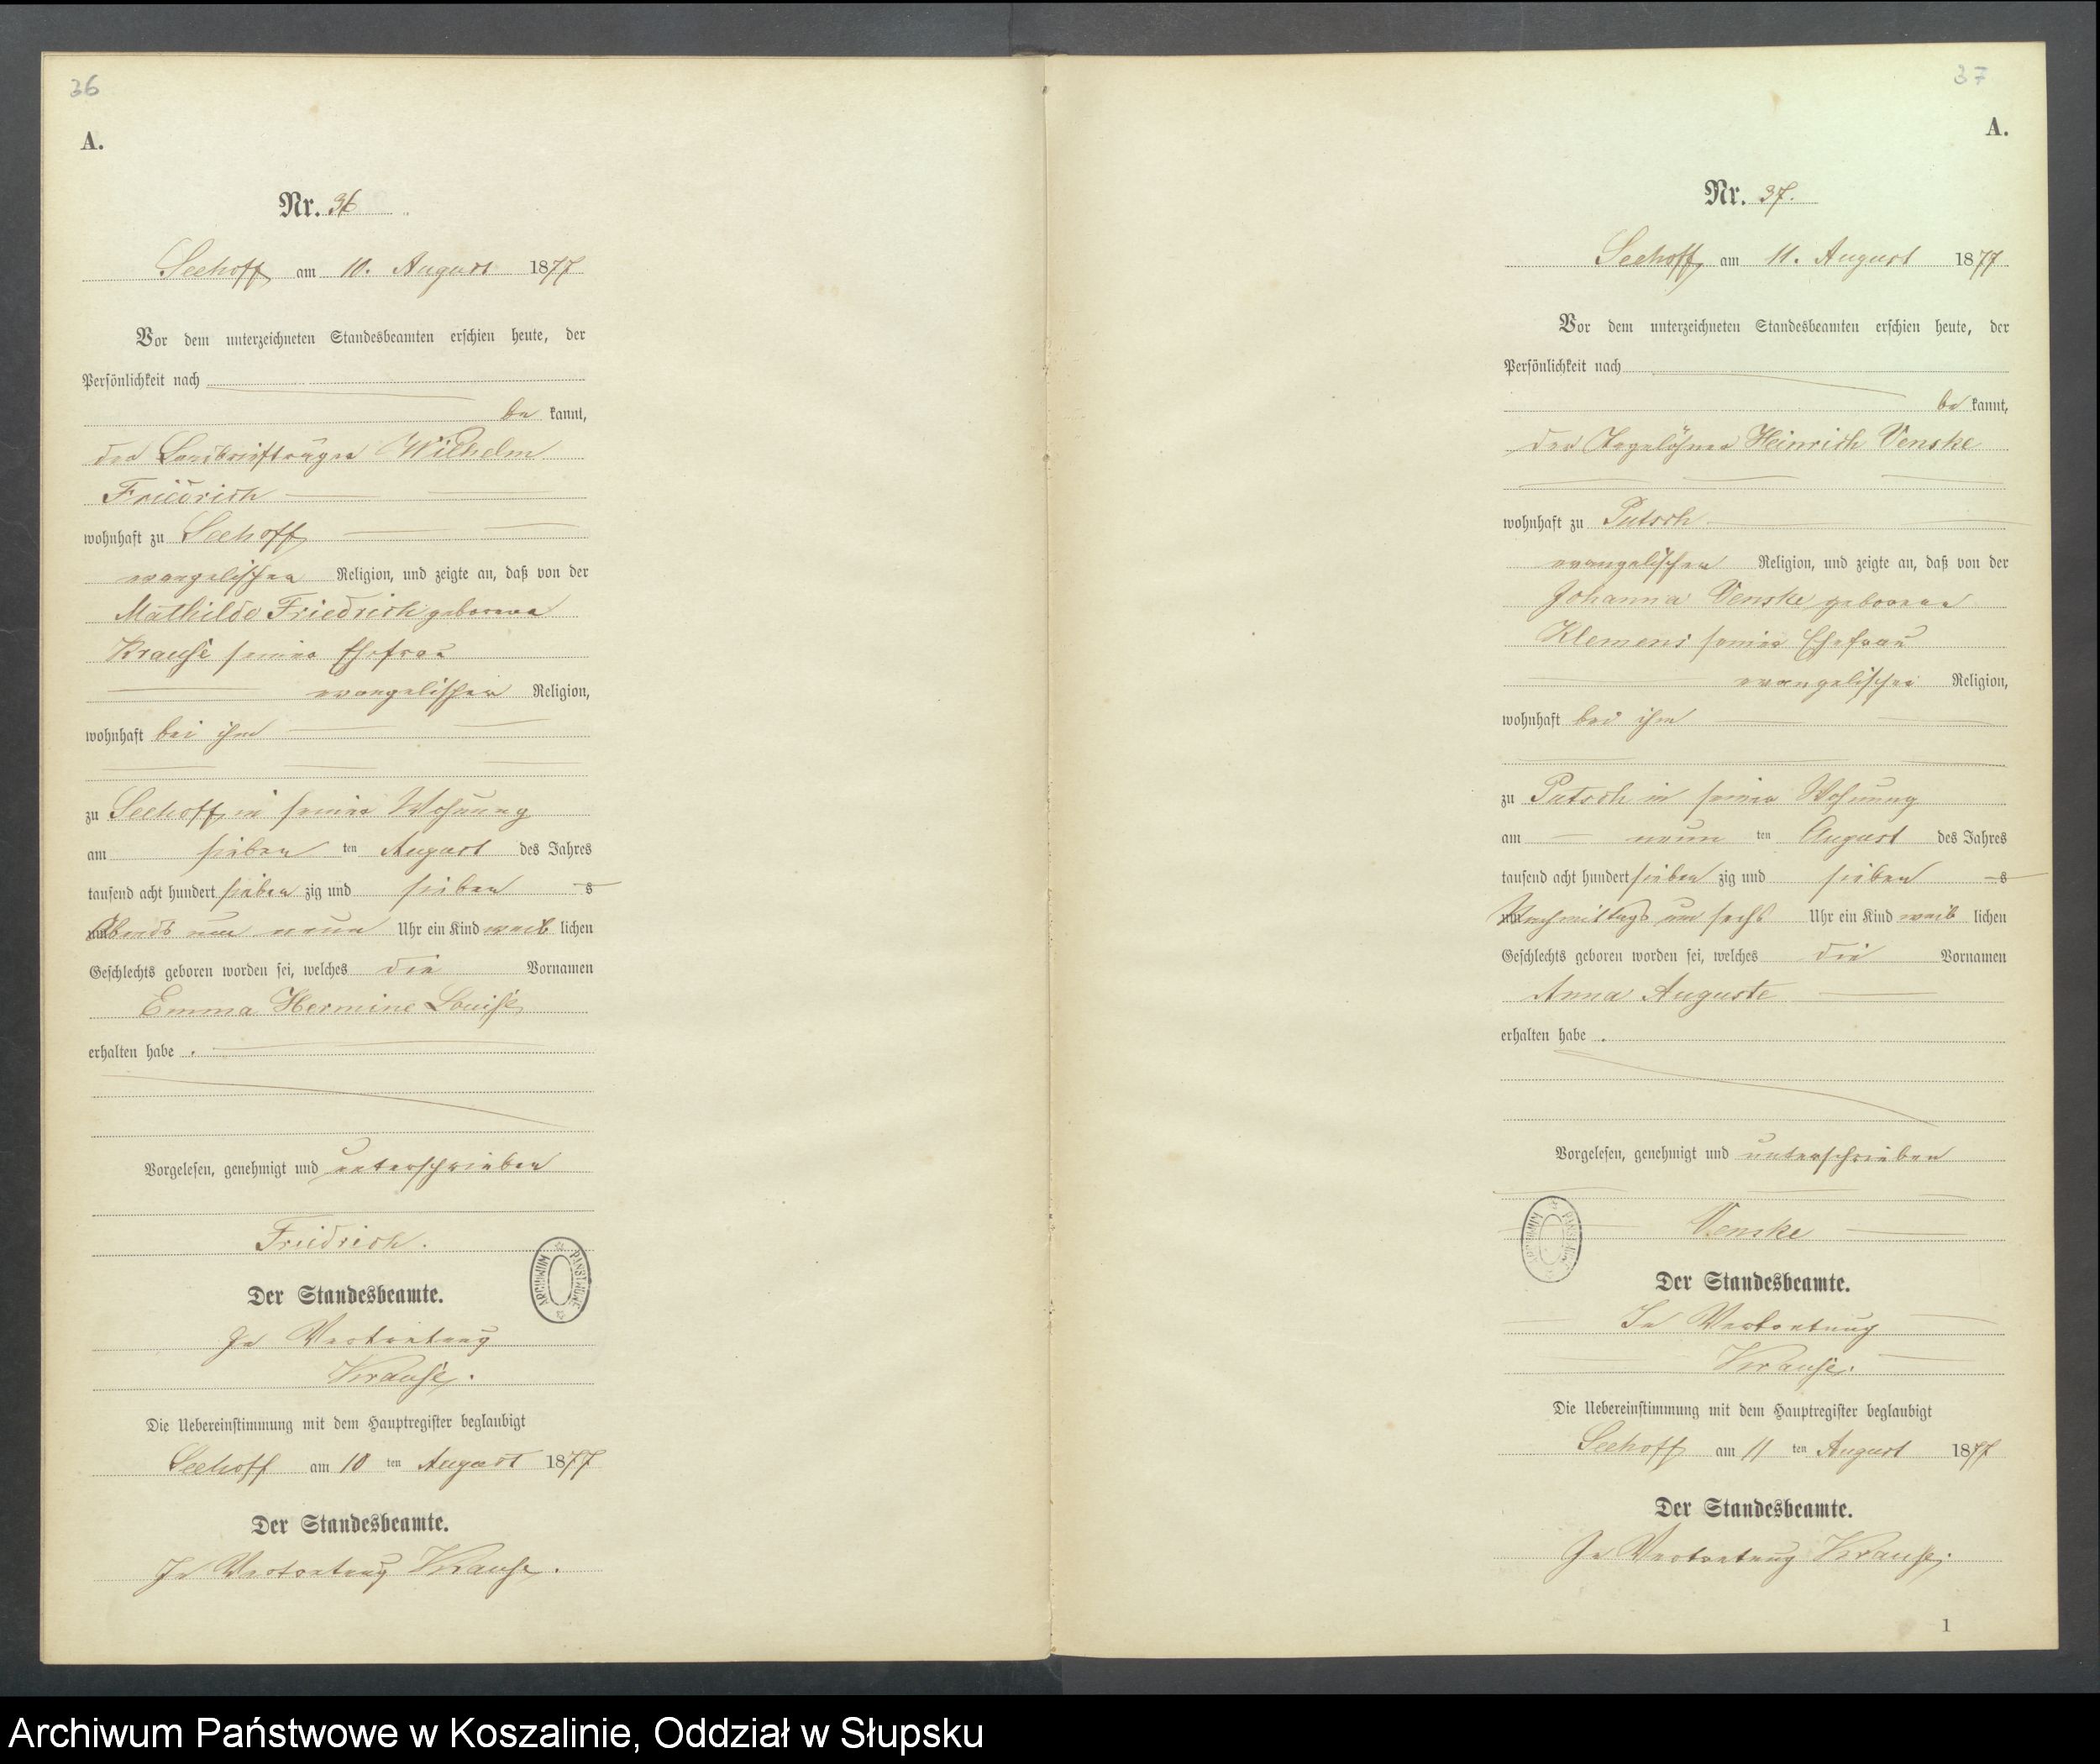 36
A.
Nr. 36
Seehoff am 10. August 1877
Vor dem unterzeichneten Standesbeamten erschien heute, der
Persönlichkeit nach
be kannt,
der Landbriefträger Wilhelm
Friedrich
wohnhaft zu Seehoff
evangelischer Religion, und zeigte an, daß von der
Mathilde Friedrich geborene
Krause seiner Ehefrau
evangelischer Religion,
wohnhaft bei ihm
zu Seehoff in seiner Wohnung
am sieben ten August des Jahres
tausend acht hundert sieben zig und sieben s
Abends um neun Uhr ein Kind weib lichen
Geschlechts geboren worden sei, welches die Vornamen
Emma Hermine Louise
erhalten habe .
Vorgelesen, genehmigt und unterschrieben
Friedrich.
Der Standesbeamte.
In Vertretung
Krause.
Die Uebereinstimmung mit dem Hauptregister beglaubigt
Seehoff am 10 ten August 1877
Der Standesbeamte.
In Vertretung Krause.
ARCHIWUM PAŃSTWOWE
37
A.
Nr. 37.
Seehoff am 11. August 1877
Vor dem unterzeichneten Standesbeamten erschien heute, der
Persönlichkeit nach
be kannt,
der Tagelöhner Heinrich Venske
wohnhaft zu Putsch
evangelischer Religion, und zeigte an, daß von der
Johanna Venske geborene
Klemens seiner Ehefrau
evangelischer Religion,
wohnhaft bei ihm
zu Putsch in seiner Wohnung
am neun ten August des Jahres
tausend acht hundert sieben zig und sieben s
Nachmittags um sechs Uhr ein Kind weib lichen
Geschlechts geboren worden sei, welches die Vornamen
Anna Auguste
erhalten habe .
Vorgelesen, genehmigt und unterschrieben
Venske
Der Standesbeamte.
In Vertretung
Krause.
Die Uebereinstimmung mit dem Hauptregister beglaubigt
Seehoff am 11 ten August 1877
Der Standesbeamte.
In Vertretung Krause.
1
Archiwum Państwowe w Koszalinie, Oddział w Słupsku